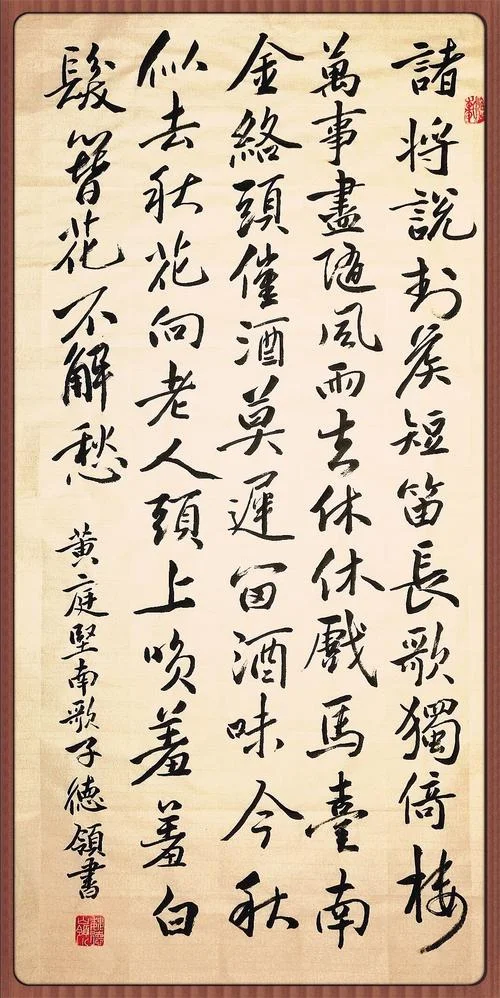 諸將說封侯短笛長歌獨倚樓
萬事盡隨風雨去休休戲馬臺南
金絡頭催酒莫遲留酒味今秋
似去秋花向老人頭上笑羞羞白
髮簪花不解愁
黃庭堅南歌子德領書